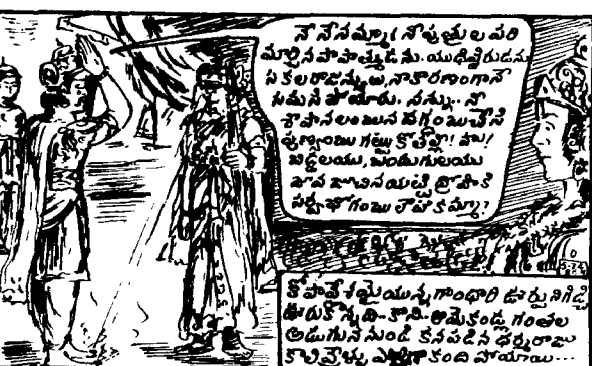 నే నేనమ్మా! నీ పుత్రుల పరి
మార్చిన పాపాత్ముడను. యుధిష్ఠిరుడను
సకలరాజన్యులు, నా కారణంగానే
సమసి పోయారు. నన్ను.. నీ
శాపానలంబున దగ్ధంబు చేసి
పుణ్యంబు గట్టు కోతల్లీ! హా!
బిడ్డలయు, బంధుగులయు
జూచినయట్టి ద్రోహికి
కమ్మా?
కోపావేశమైయున్న గాంధారి ఊర్పు నిగిడ్చి
ఊరుకొన్నది. కానీ. ఆమె కండ్ల గంతల
అడుగున నుండి కనపడిన ధర్మరాజు
కాలివ్రేళ్ళు ఎర్రగా కంది పోయాయి...